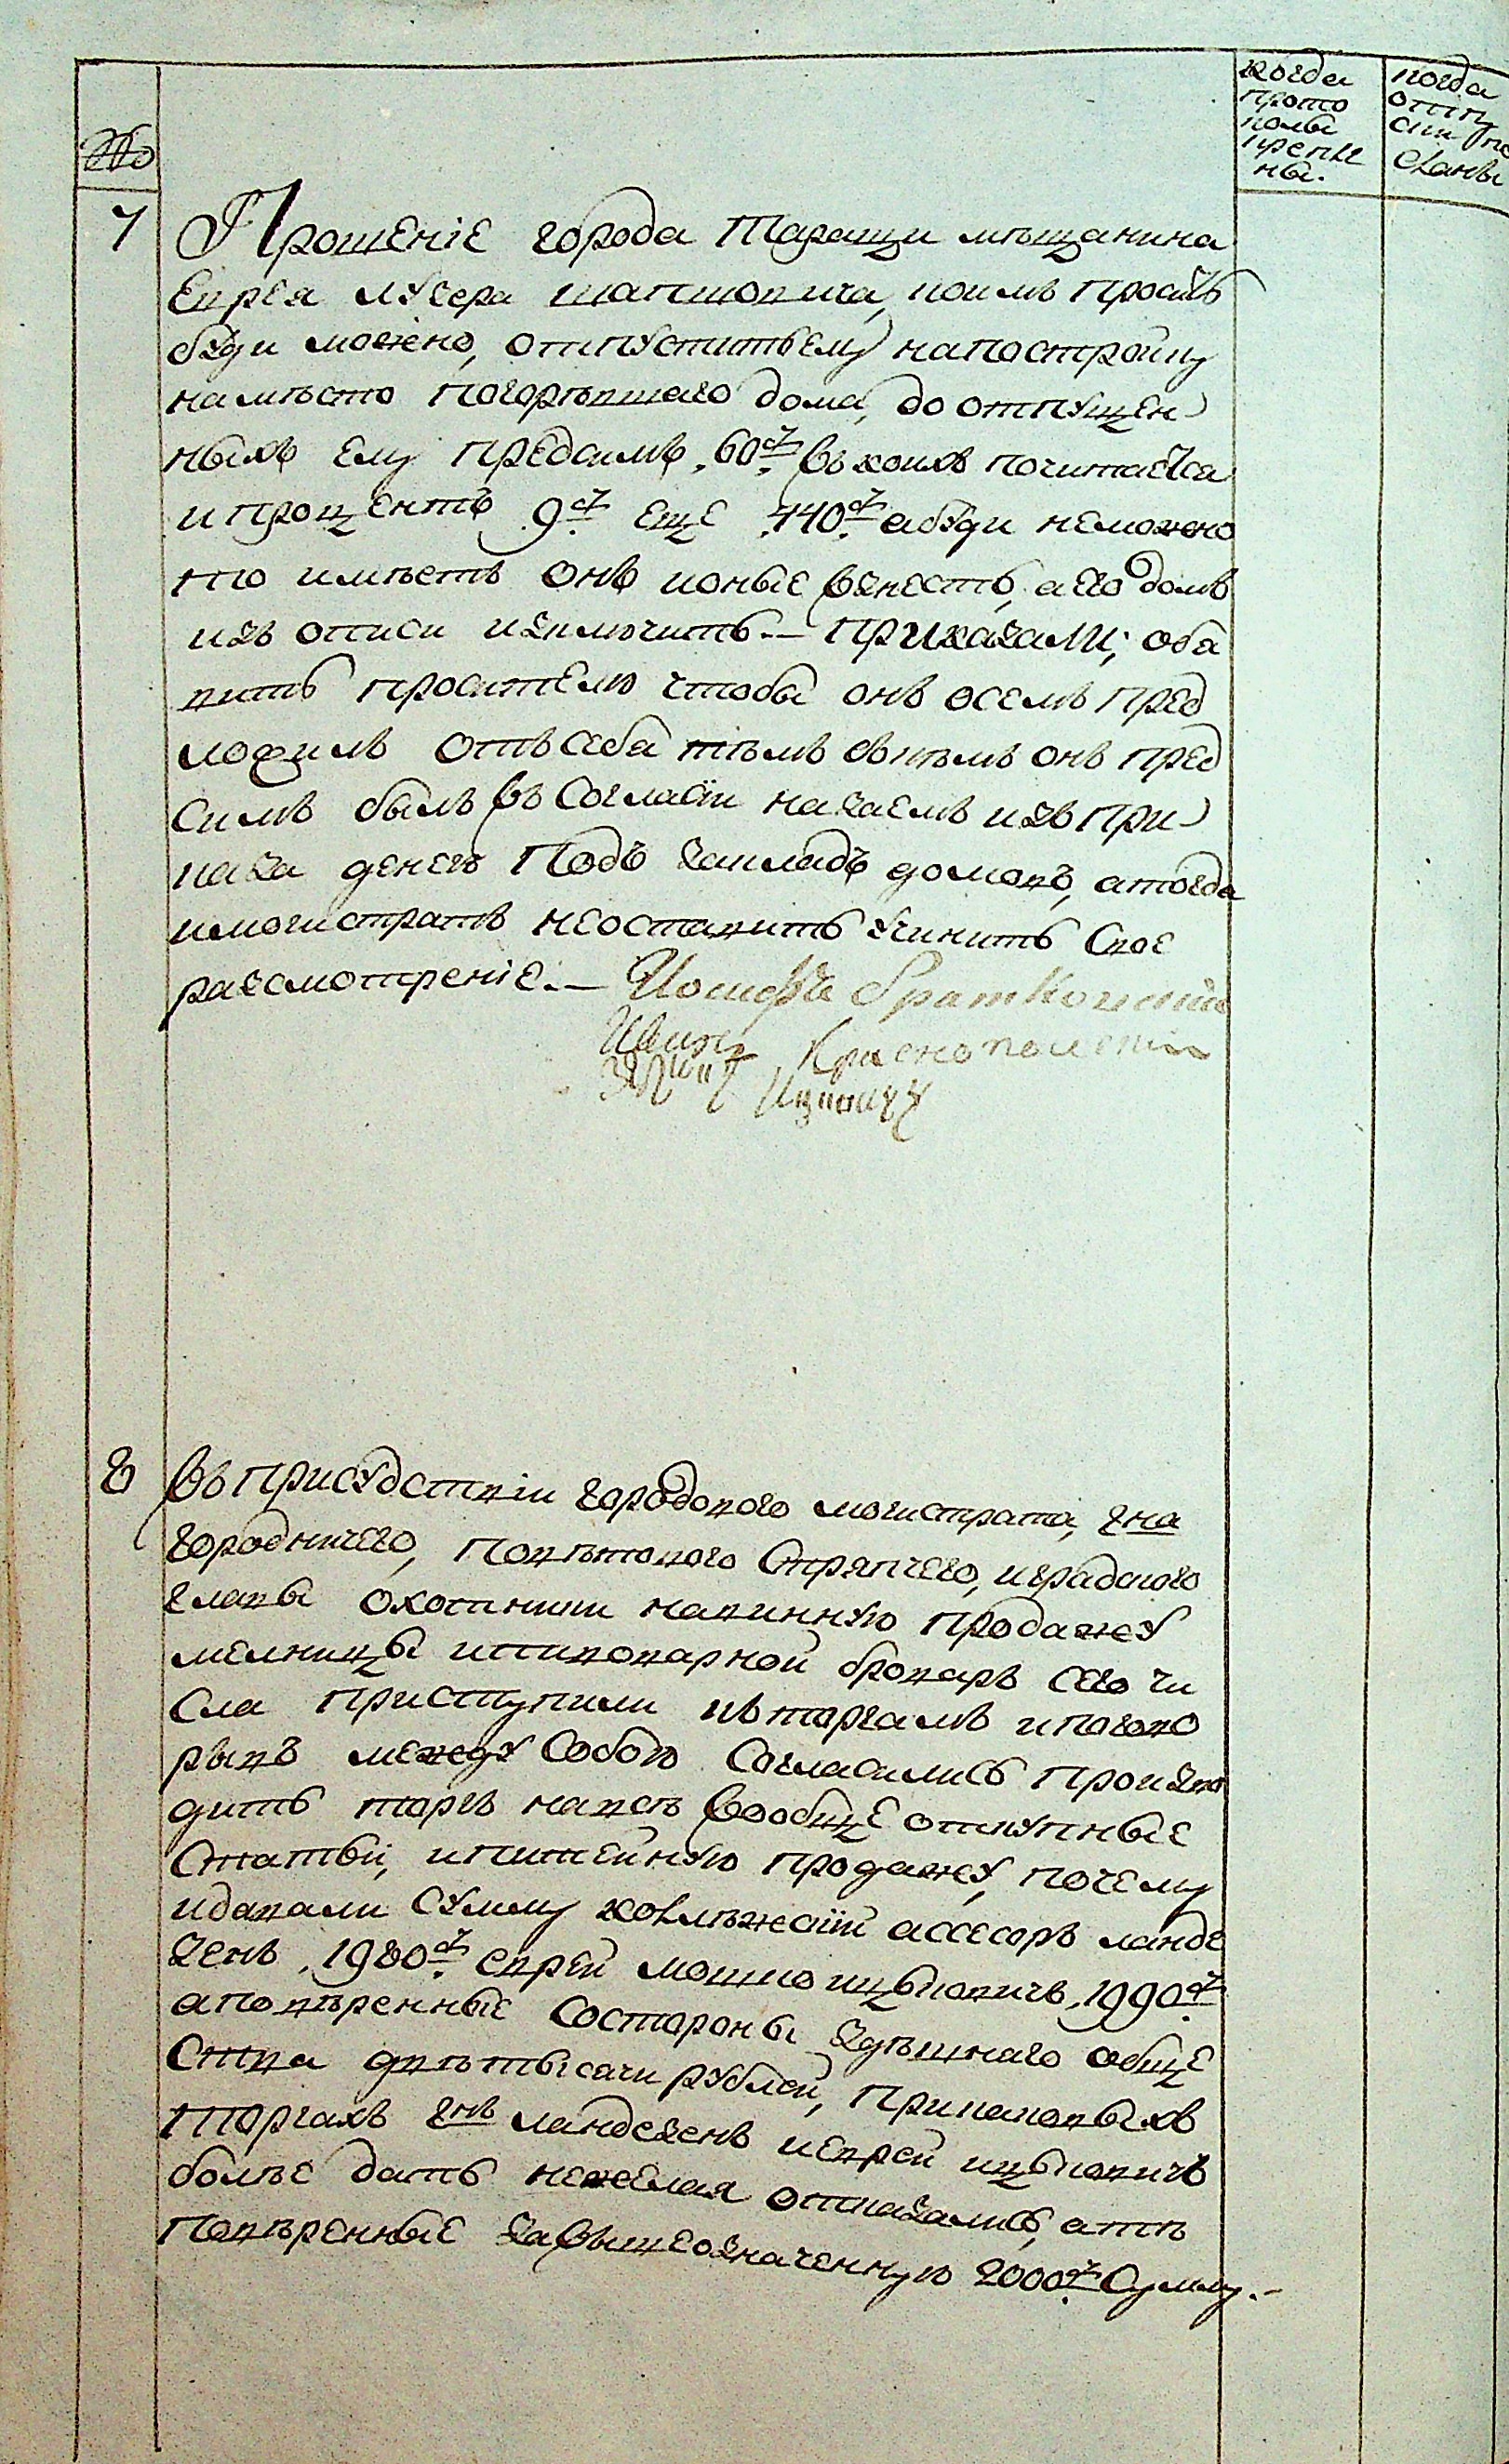 когда
прото
колы
крепле
ны.
когда
отпу
ски по
сланы
№
7
Прошеніе города Таращи мѣщанина
Еврея лузера шапшовича, коимъ просить
буди можно, отпустить ему на постройку
на мѣсто погорѣвшаго дома, до отпущен
ныхъ ему предсимъ 60 р въ коихъ почитается
и процентъ 9 р еще 440 р а буди неможно
то имѣетъ онъ коные взнесть, а его домъ
изъ описи изключить. — приказали; обя
вить просителю чтобы онъ осемъ пред
ложилъ отъ себя тѣмъ съ кѣмъ онъ пред
симъ былъ въ согласіи на заемъ изъ при
каза денегъ подъ закладъ домовъ, а тогда
и магистратъ неоставитъ учинить свое
разсмотреніе. — Иосифъ Братковскій
Краснопольскій
Ицкович
8
въ присудствіи городового магистрата, гна
городничего, повѣтового стряпчего, и градского
главы охотники на винную продажу
мелницы и пивоварной броваръ сего чи
сла приступили къ торгамъ и поговo
рывъ между собою согласились произво
дить торгъ на всѣ вообще откупные
статьи, и питейную продажу, почему
и давали сумму коллѣжскій ассесоръ ланде
зенъ 1980 р еврей мошко ицковичъ 1990 р
а повѣренные состороны здѣшнаго обще
ства двѣ тысячи рублей, при каковыхъ
торгахъ гнъ ландезенъ и еврей ицковичъ
болѣе дать нежелая отказались, а тѣ
повѣренные за вышеозначенную 2000 р сумму. —